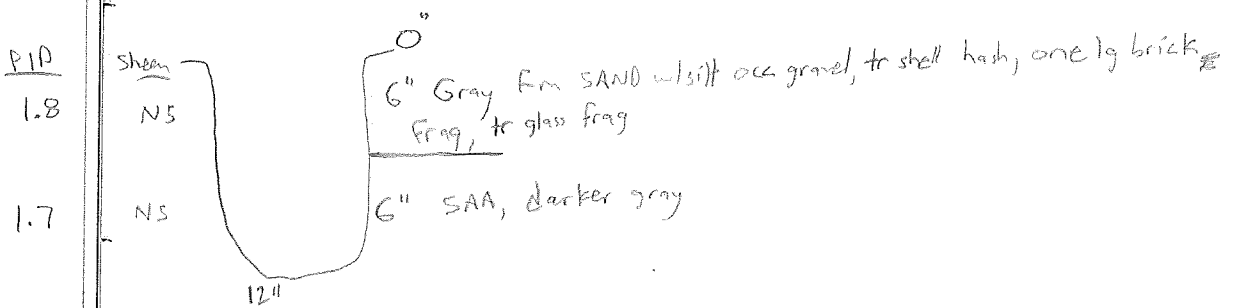 0"
PID Sheen
6" Gray fm SAND w/silt occ gravel, tr shell hash, one lg brick
1.8 NS
frag, tr glass frag
6" SAA, darker gray
1.7 NS
12"